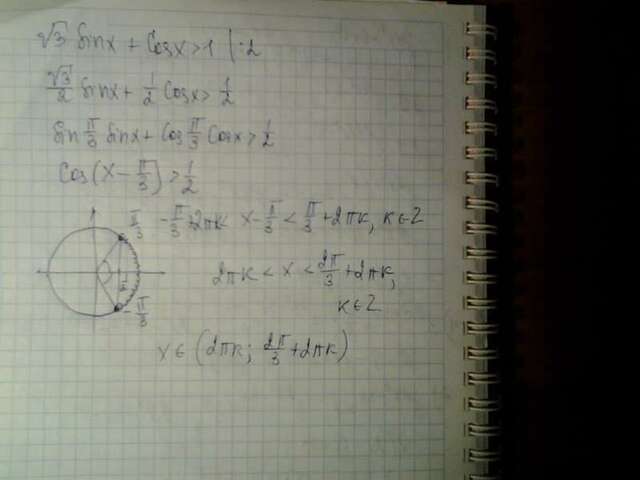 √3 Sinx + Cosx > 1 | :2
√3/2 Sinx + 1/2 Cosx > 1/2
Sin π/3 Sinx + Cos π/3 Cosx > 1/2
Cos(x - π/3) > 1/2
π/3
-π/3 + 2πk x - π/3 < π/3 + 2πk, k∈Z
-π/3
2πk < x < 2π/3 + 2πk,
k∈Z
x∈(2πk; 2π/3 + 2πk)